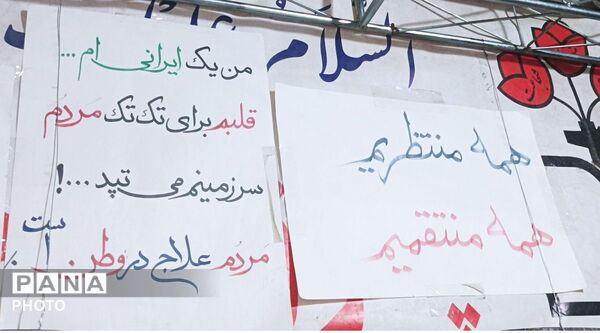 السلام
همه منتظریم
همه منتقمیم
من یک ایرانی ام ...
قلبم برای تک تک مردم
سرزمینم می تپد ...!
مردم علاج در وطن است
PANA
PHOTO